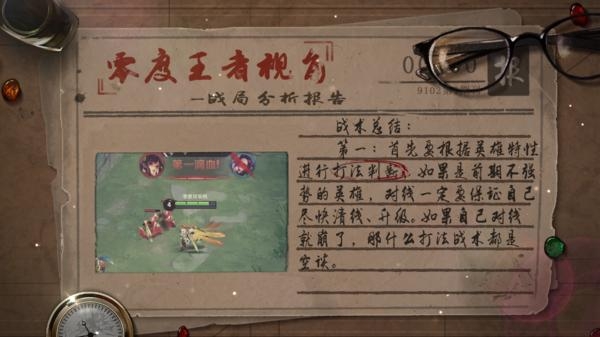 零度王者视角
—战局分析报告
战术总结：
第一：首先要根据英雄特性
进行打法判断，如果是前期不强
势的英雄，对线一定要保证自己
尽快清线、升级。如果自己对线
就崩了，那什么打法战术都是
空谈。
第一滴血!